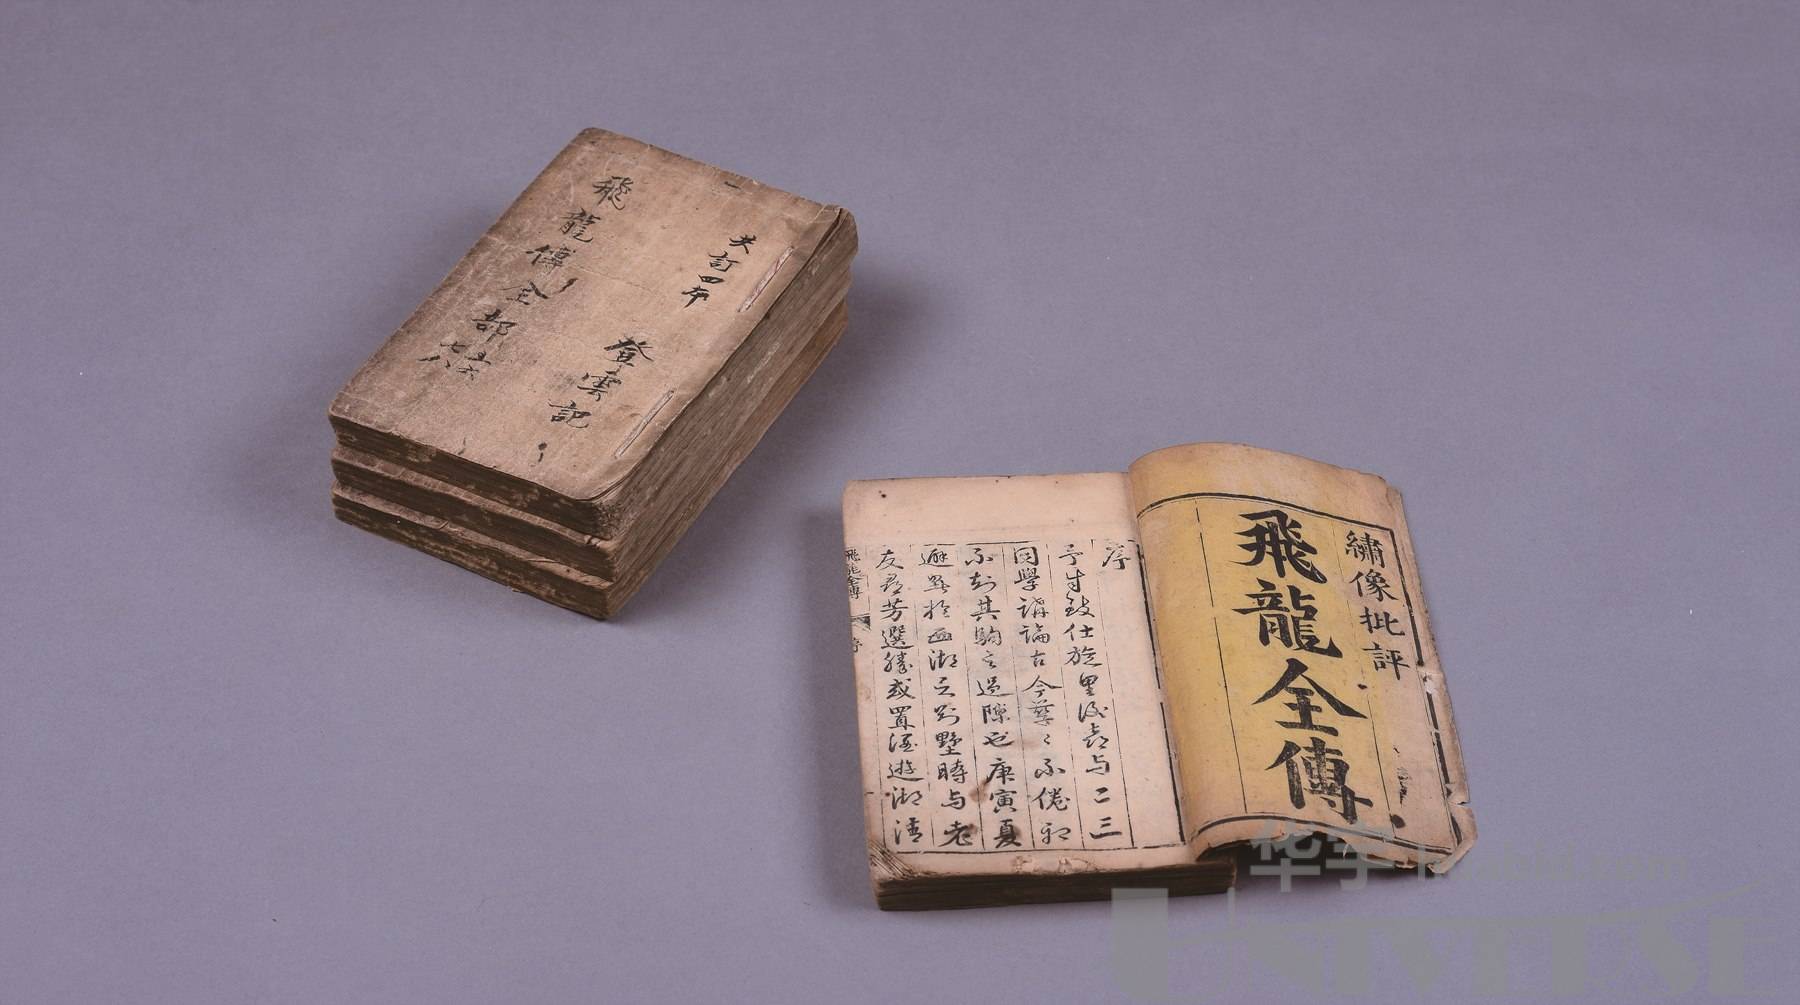 共訂四本
登雲記
飛龍傳全部
五六
七八
繡像批評
飛龍全傳
序
予昔致仕旋里後嘗与二三
同學講論古今孳〻不倦初
不知其駒之過隙也庚寅夏
避暑於西湖之別墅時与老
友尋芳選勝或置酒遊湖清
飛龍全傳
序
华宇